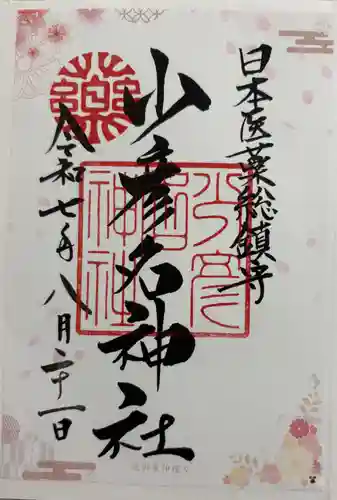 日本医薬総鎮守
少彦名神社
令和七年八月二十一日
薬
少彦名神社